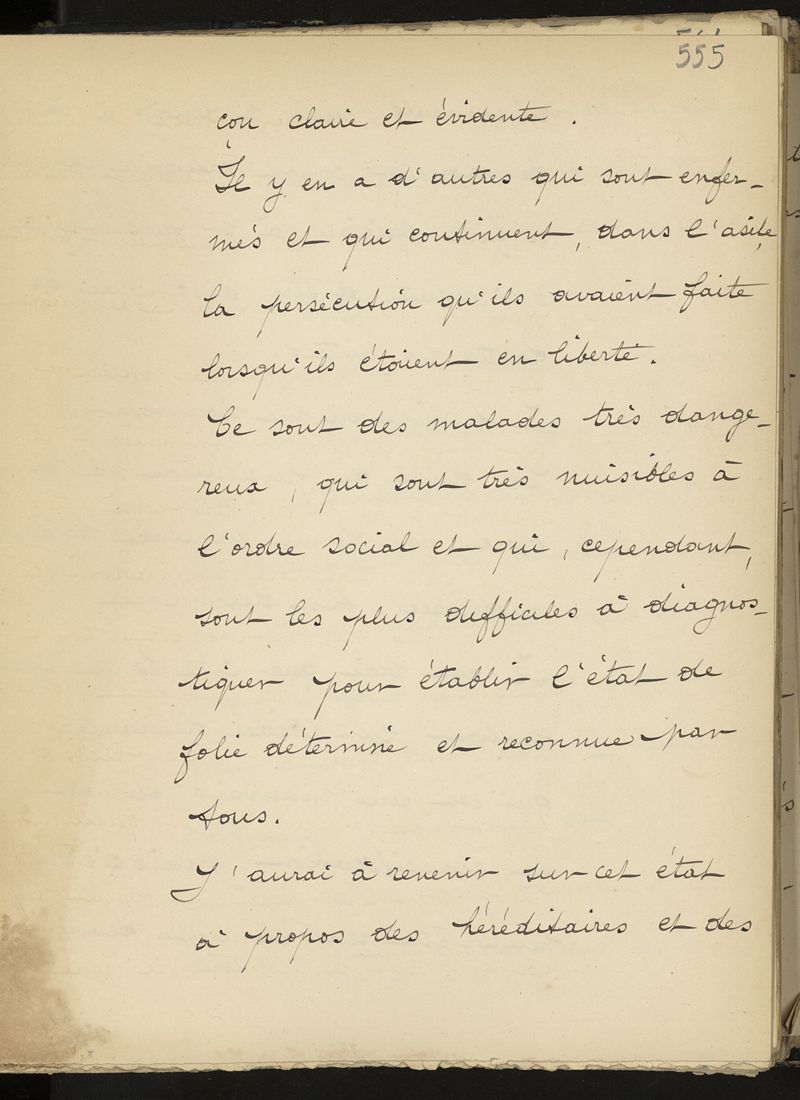 555
çon claire et évidente.
Il y en a d'autres qui sont enfer-
més et qui continuent, dans l'asile,
la persécution qu'ils avaient faite
lorsqu'ils étaient en liberté.
Ce sont des malades très dange-
reux, qui sont très nuisibles à
l'ordre social et qui, cependant,
sont les plus difficiles à diagnos-
tiquer pour établir l'état de
folie déterminé et reconnue par
tous.
J'aurai à revenir sur cet état
à propos des héréditaires et des